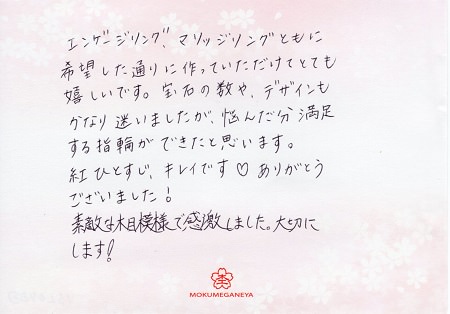 エンゲージリング、マリッジリングともに
希望した通りに作っていただけてとても
嬉しいです。宝石の数や、デザインも
かなり迷いましたが、悩んだ分満足
する指輪ができたと思います。
紅ひとすじ、キレイです♡ ありがとう
ございました！
素敵な木目模様で感激しました。大切に
します！
MOKUMEGANEYA